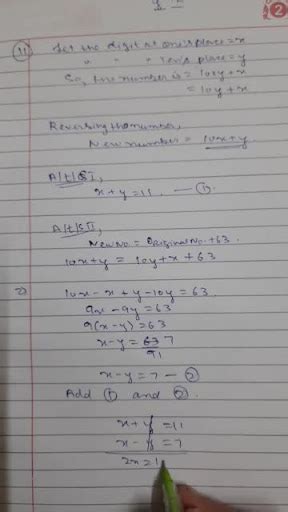 (11) Let the digit at one's place = x
" " " ten's place = y
So, the number is = 10y + x
= 10y + x
Reversing the number,
New number = 10x + y
A/t/Q I,
x + y = 11 — ①
A/t/Q II,
New No = Original No. + 63
10x + y = 10y + x + 63
10x - x + y - 10y = 63
9x - 9y = 63
9(x - y) = 63
x - y = 63 7
9 1
x - y = 7 — ②
Add ① and ②.
x + y = 11
x - y = 7
2x = 1